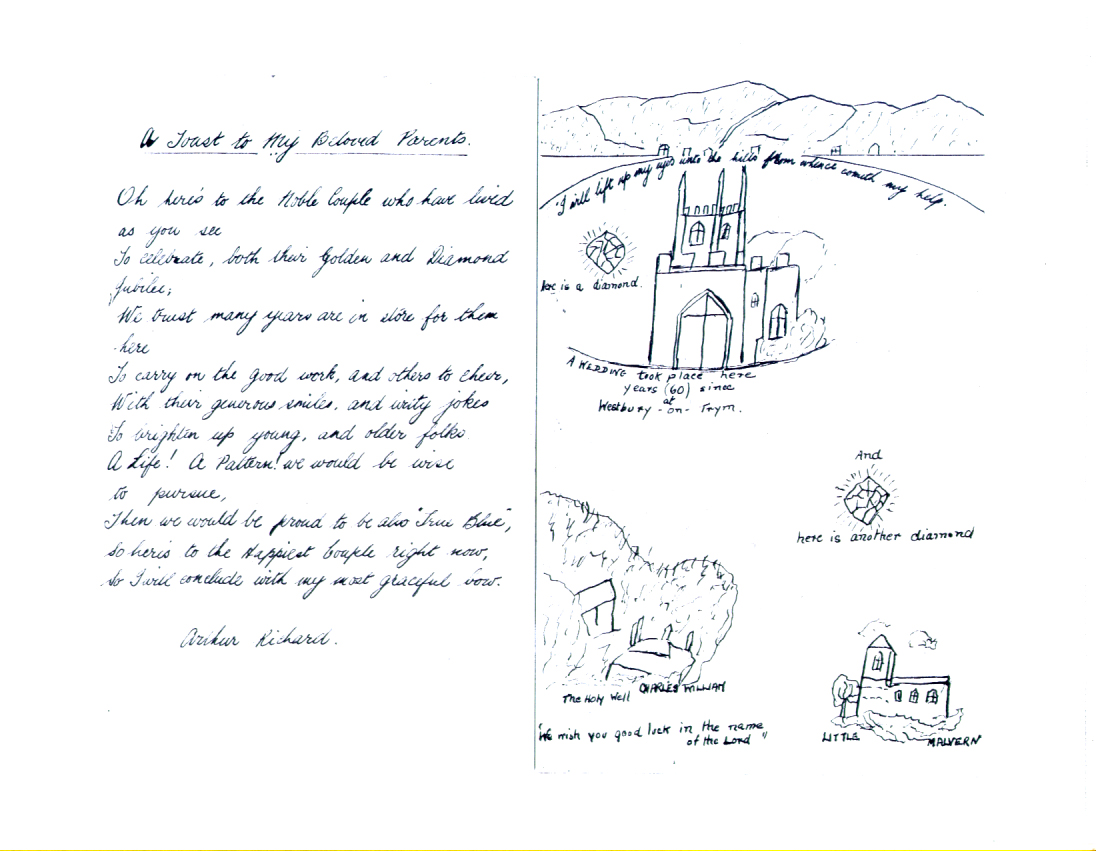 A Toast to My Beloved Parents.
Oh here's to the Noble Couple who have lived
as you see
To celebrate, both their Golden and Diamond
Jubilee;
We trust many years are in store for them
here
To carry on the good work, and others to cheer,
With their generous smiles, and witty jokes
To brighten up young, and older folks
A Life! A Pattern! we would be wise
to pursue,
Then we would be proud to be also "True Blue",
So here's to the Happiest Couple right now,
So I will conclude with my most graceful bow.
Arthur Richard.
"I will lift up my eyes unto the hills from whence cometh my help.
here is a diamond.
A WEDDING took place here
years (60) since
at
Westbury-on-Trym.
And
here is another diamond
The Holy Well
CHARLES WILLIAM
"We wish you good luck in the name
of the Lord"
LITTLE MALVERN